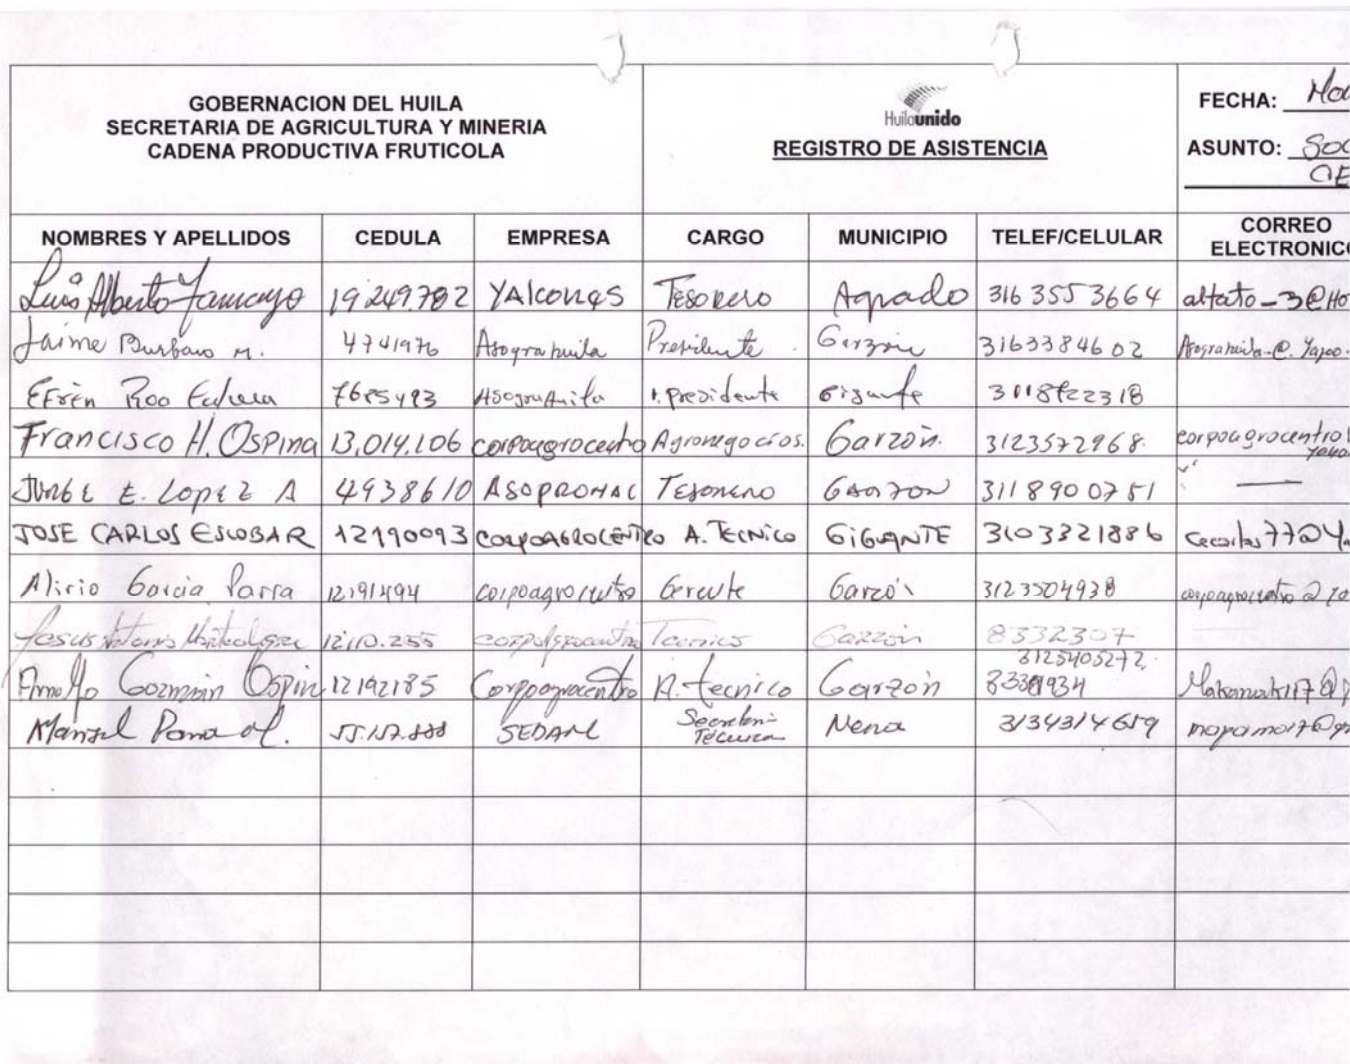 GOBERNACION DEL HUILA
SECRETARIA DE AGRICULTURA Y MINERIA
CADENA PRODUCTIVA FRUTICOLA
Huilaunido
REGISTRO DE ASISTENCIA
FECHA:
ASUNTO: Soc
NOMBRES Y APELLIDOS CEDULA EMPRESA CARGO MUNICIPIO TELEF/CELULAR CORREO ELECTRONICO
Luis Alberto Tamayo 19249.782 YAlcones Tesorero Agrado 316 355 3664
Jaime Burbano M. 4741976 Asograhuila Presidente Garzón 3163384602
Efrén Asograhuila V. presidente Gigante
Francisco H. Ospina 13.014.106 corpoagrocentro Agronegocios. Garzón. 3123572968. corpoagrocentro
JORGE E. LOPEZ A 4938610 ASOPROMAC TESORERO GARZON 3118900751
JOSE CARLOS ESCOBAR 12190093 CORPOAGROCENTRO A. TECNICO GIGANTE 3103321886
Alirio Garcia Parra 12191494 corpoagrocentro Gerente Garzón 3123504938 corpoagrocentro @
Jesus Antonio 12110.255 corpoagrocentro Tecnico Garzón 8332307
3125405272.
Guzmán Ospin 12192185 Corpoagrocentro A. tecnico Garzón
55.157.888 Secretaria Técnica 3134314659